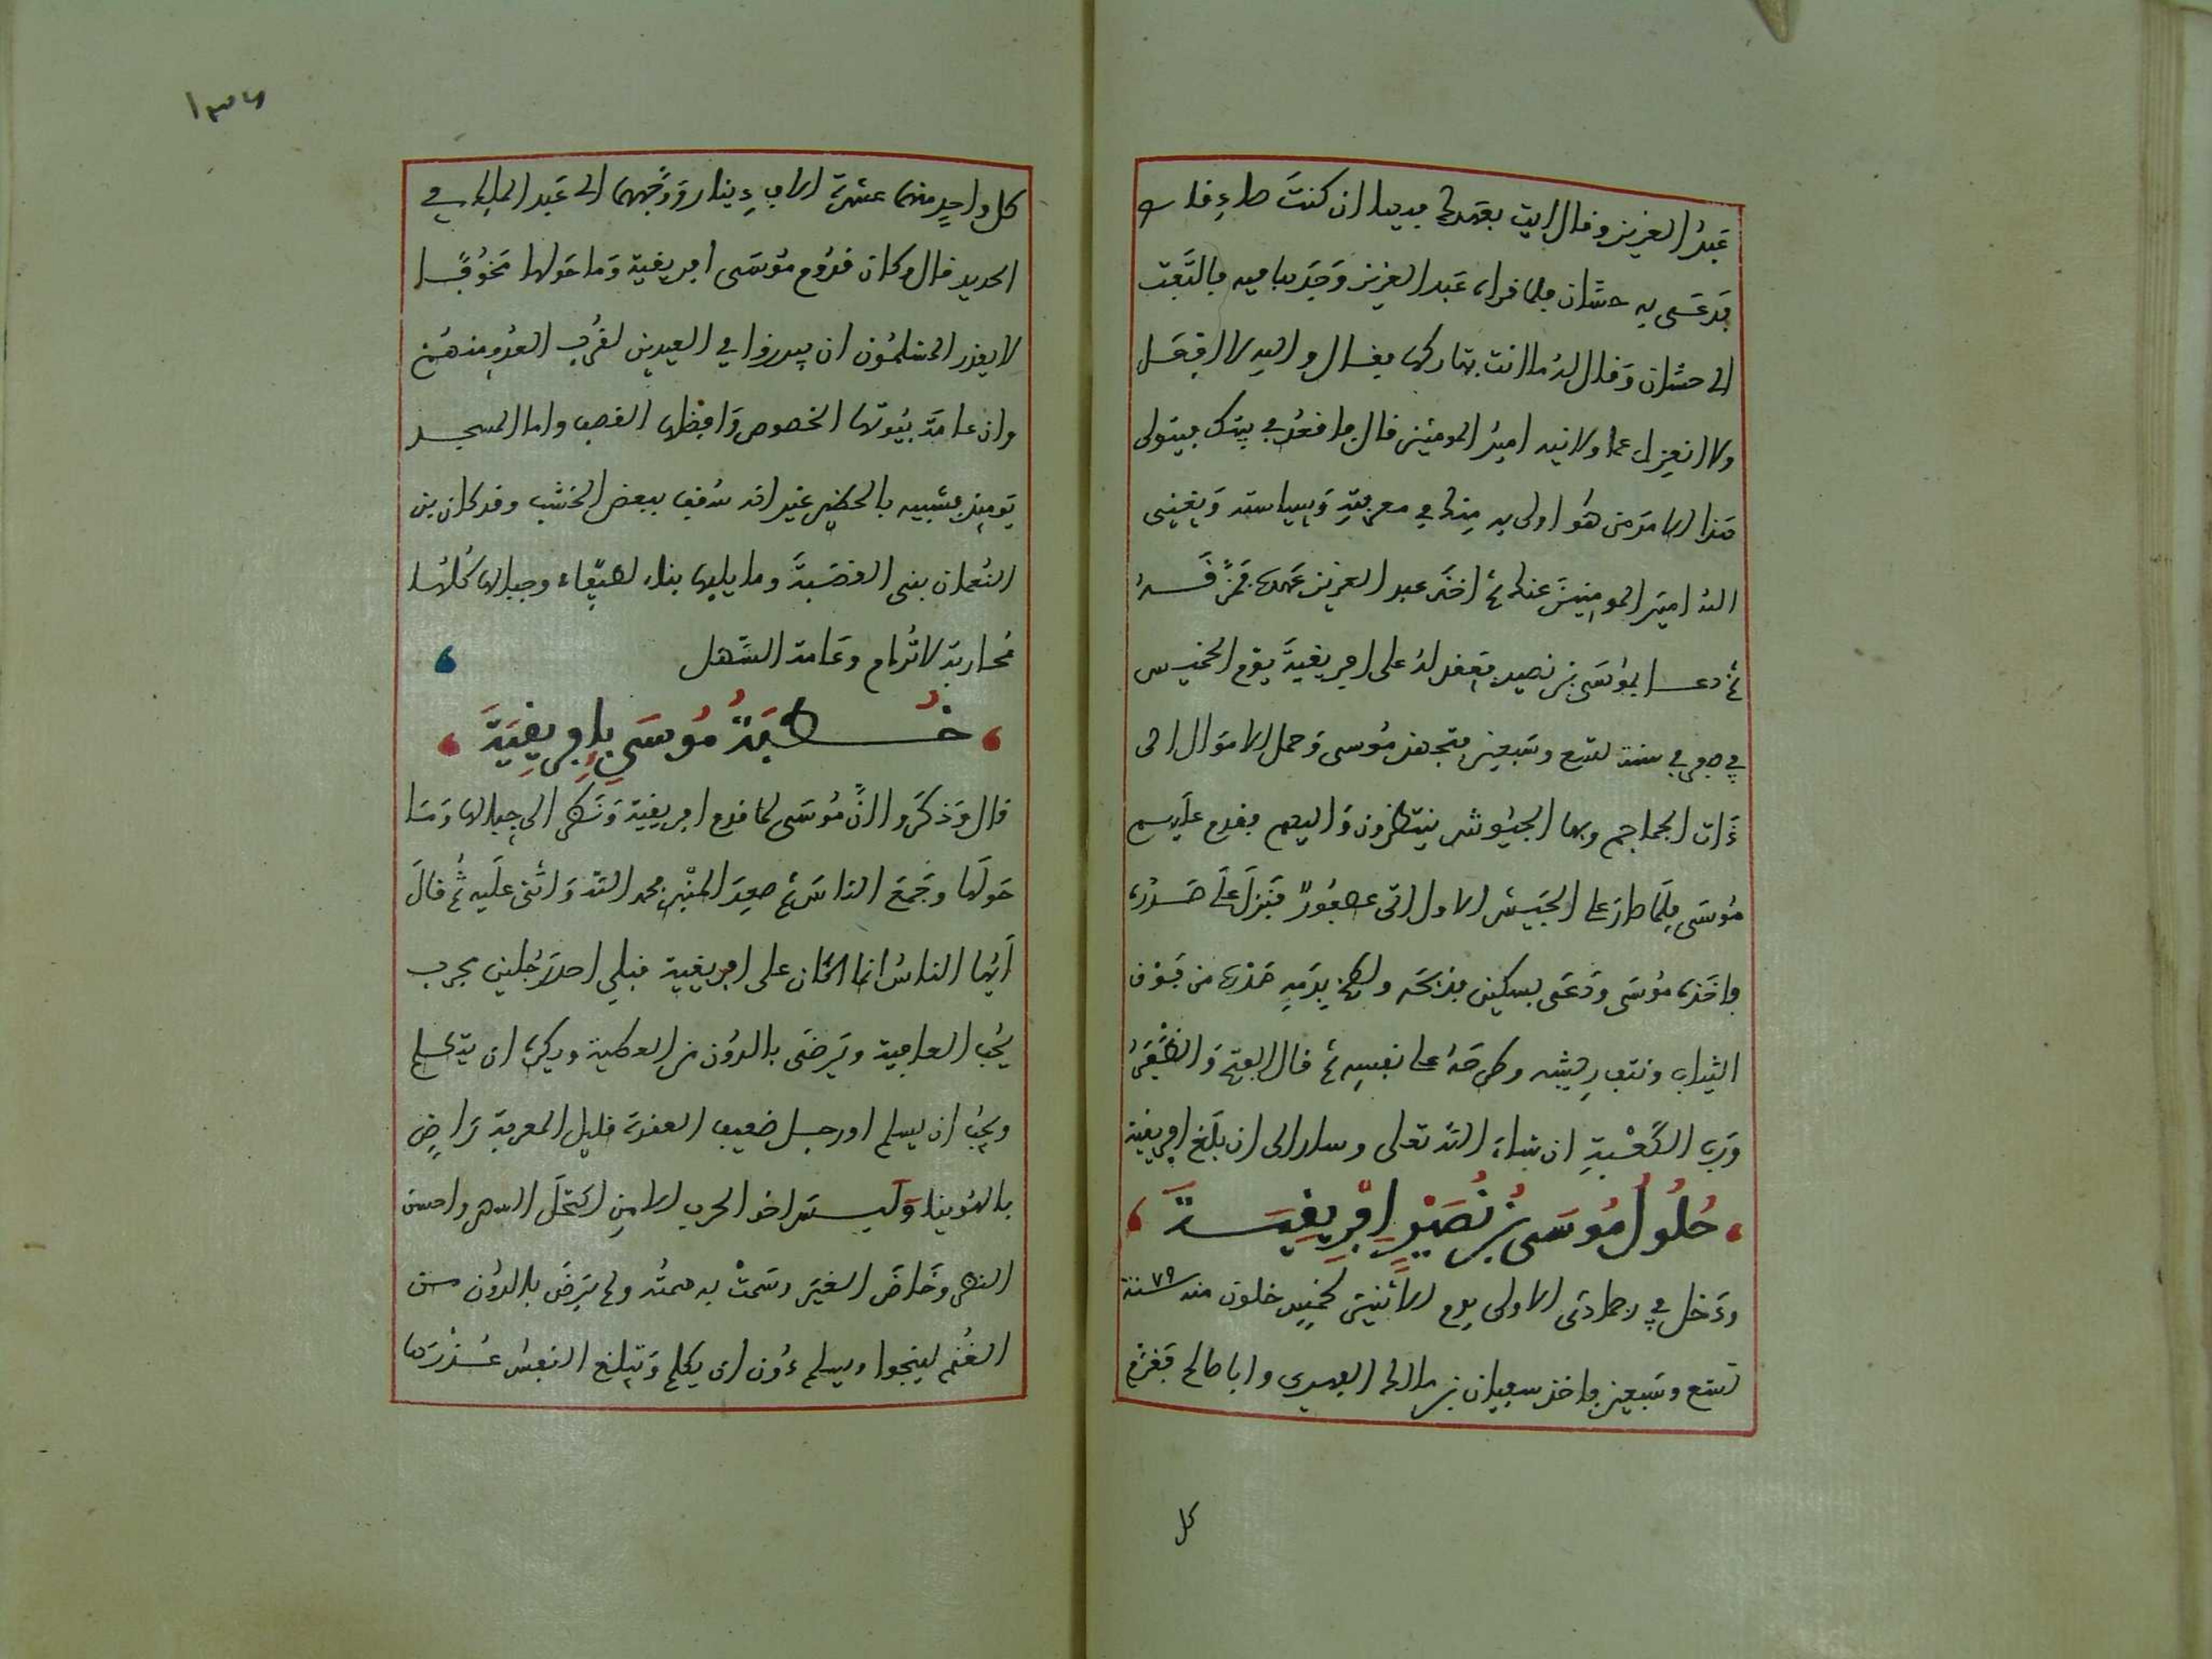 عَبدُ العزيز وقال ايت بعَهدك به يا ان كنتَ صادقا
فدَعَى به حسّان فلما قراه عَبد العزيز وَجَد بما فيه فالتَفَت
الى حسّان وَقال لهُ ما انت بتاركها فقال والله لا افعَل
ولا انعزل عما ولانيه اميرُ المومنين قال فاقعُد في بيتك فسيتولى
هَذا الامرَ من هُو اولى به منك في معرفتِهِ وَسياسته وَيغني
اللهُ اميرَ المومنينَ عنك ثم اخَذ عبد العزيز عَهدَهُ فمَزَّقَهُ
ثم دعا بموُسَى بن نصير فعقد لهُ على افريقيةَ يَوم الخميس
في صفر في سنة تسع وسَبعين فتجهز مُوسى وَحمل الامَوال الى
ذَات الجماجم وبها الجيُوش ينتظرون وَاليهم فقدم عليهم
مُوسَى فلمَّا صار على الجَيش الاول اتى عصفُورٌ فنَزلَ على صَدره
فاخَذه مُوسَى ودَعَى بسكين فذبحَه ولطخ بدَمِه صَدرَه من فَوق
الثياب ونتف ريشه وطرحَهُ على نفسِه ثم قال الفتح وَالظفَرُ
وَرب الكَعْبةِ ان شاء الله تعلى وسار الى ان بلَغ افريقية
حُلُولُ مُوسَى بْنُ نُصَيْرٍ اِفْرِيقِيَةَ
ودَخل في جمادى الاولى يوم الاثنين لخمسٍ خلون منه سنة ٧٩
تسع وسَبعين فاخذ سفيان بن مالك الفهري وابا صالح فغَرَّم
كل
١٣٦
كل واحِدٍ منهما عشرة الافِ دينار وَوَجَّههما الى عَبد الملك في
الحديد قال وكان قدُوم مُوسَى افريقية وَما حَولها مَخوُفًا
لا يقدر المسلمُون ان يبرزوا في العيدين لقُربِ العدُو منهُم
وان عامَّة بيُوتها الخصوص وَافضلها القصب واما المسجد
يَومئذ فشبيه بالحظير غير انه سُقِف ببعض الخشب وقد كان بن
النُعمان بنى القصَبةَ وما يليها بناء ضعيفا وجبالها كُلهَا
مُحاربة لا تُرام وعَامة السَّهل
خُطبَةُ مُوسَى بِاِفرِيقِيَةَ
قال وَذكرَوا انَّ مُوسَى لما قدم افريقية وَنَظر الى جبالها وَمَا
حَولَها وجَمَعَ الناسَ ثم صعِدَ المنْبر فحمد اللهَ وَاثنى علَيه ثُم قالَ
اَيّها الناسُ انما كان على افريقية قبلي احدَ رَجُلين
يُحب العافية ويَرضَى بالدُون من العطية ويكره ان يكلم
ويُحب ان يسلم او رجل ضعيف العقدة قليل المعرفة رَاضٍ
بالهُوينا وَليسَ اخو الحرب الا منِ اكتحَلَ السهر واحسن
النظر وخَاضَ الغمَر وسَمتْ به همتُه ولم يَرضَ بالدوُن من
الغُنم لينجوا ويسلم دُون ان يكلم وَيَبلغ النفسُ عُذْرَها